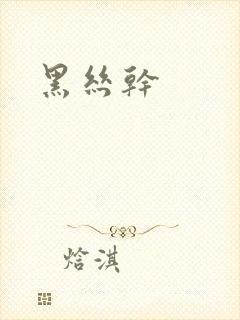 黑丝幹
焓淇